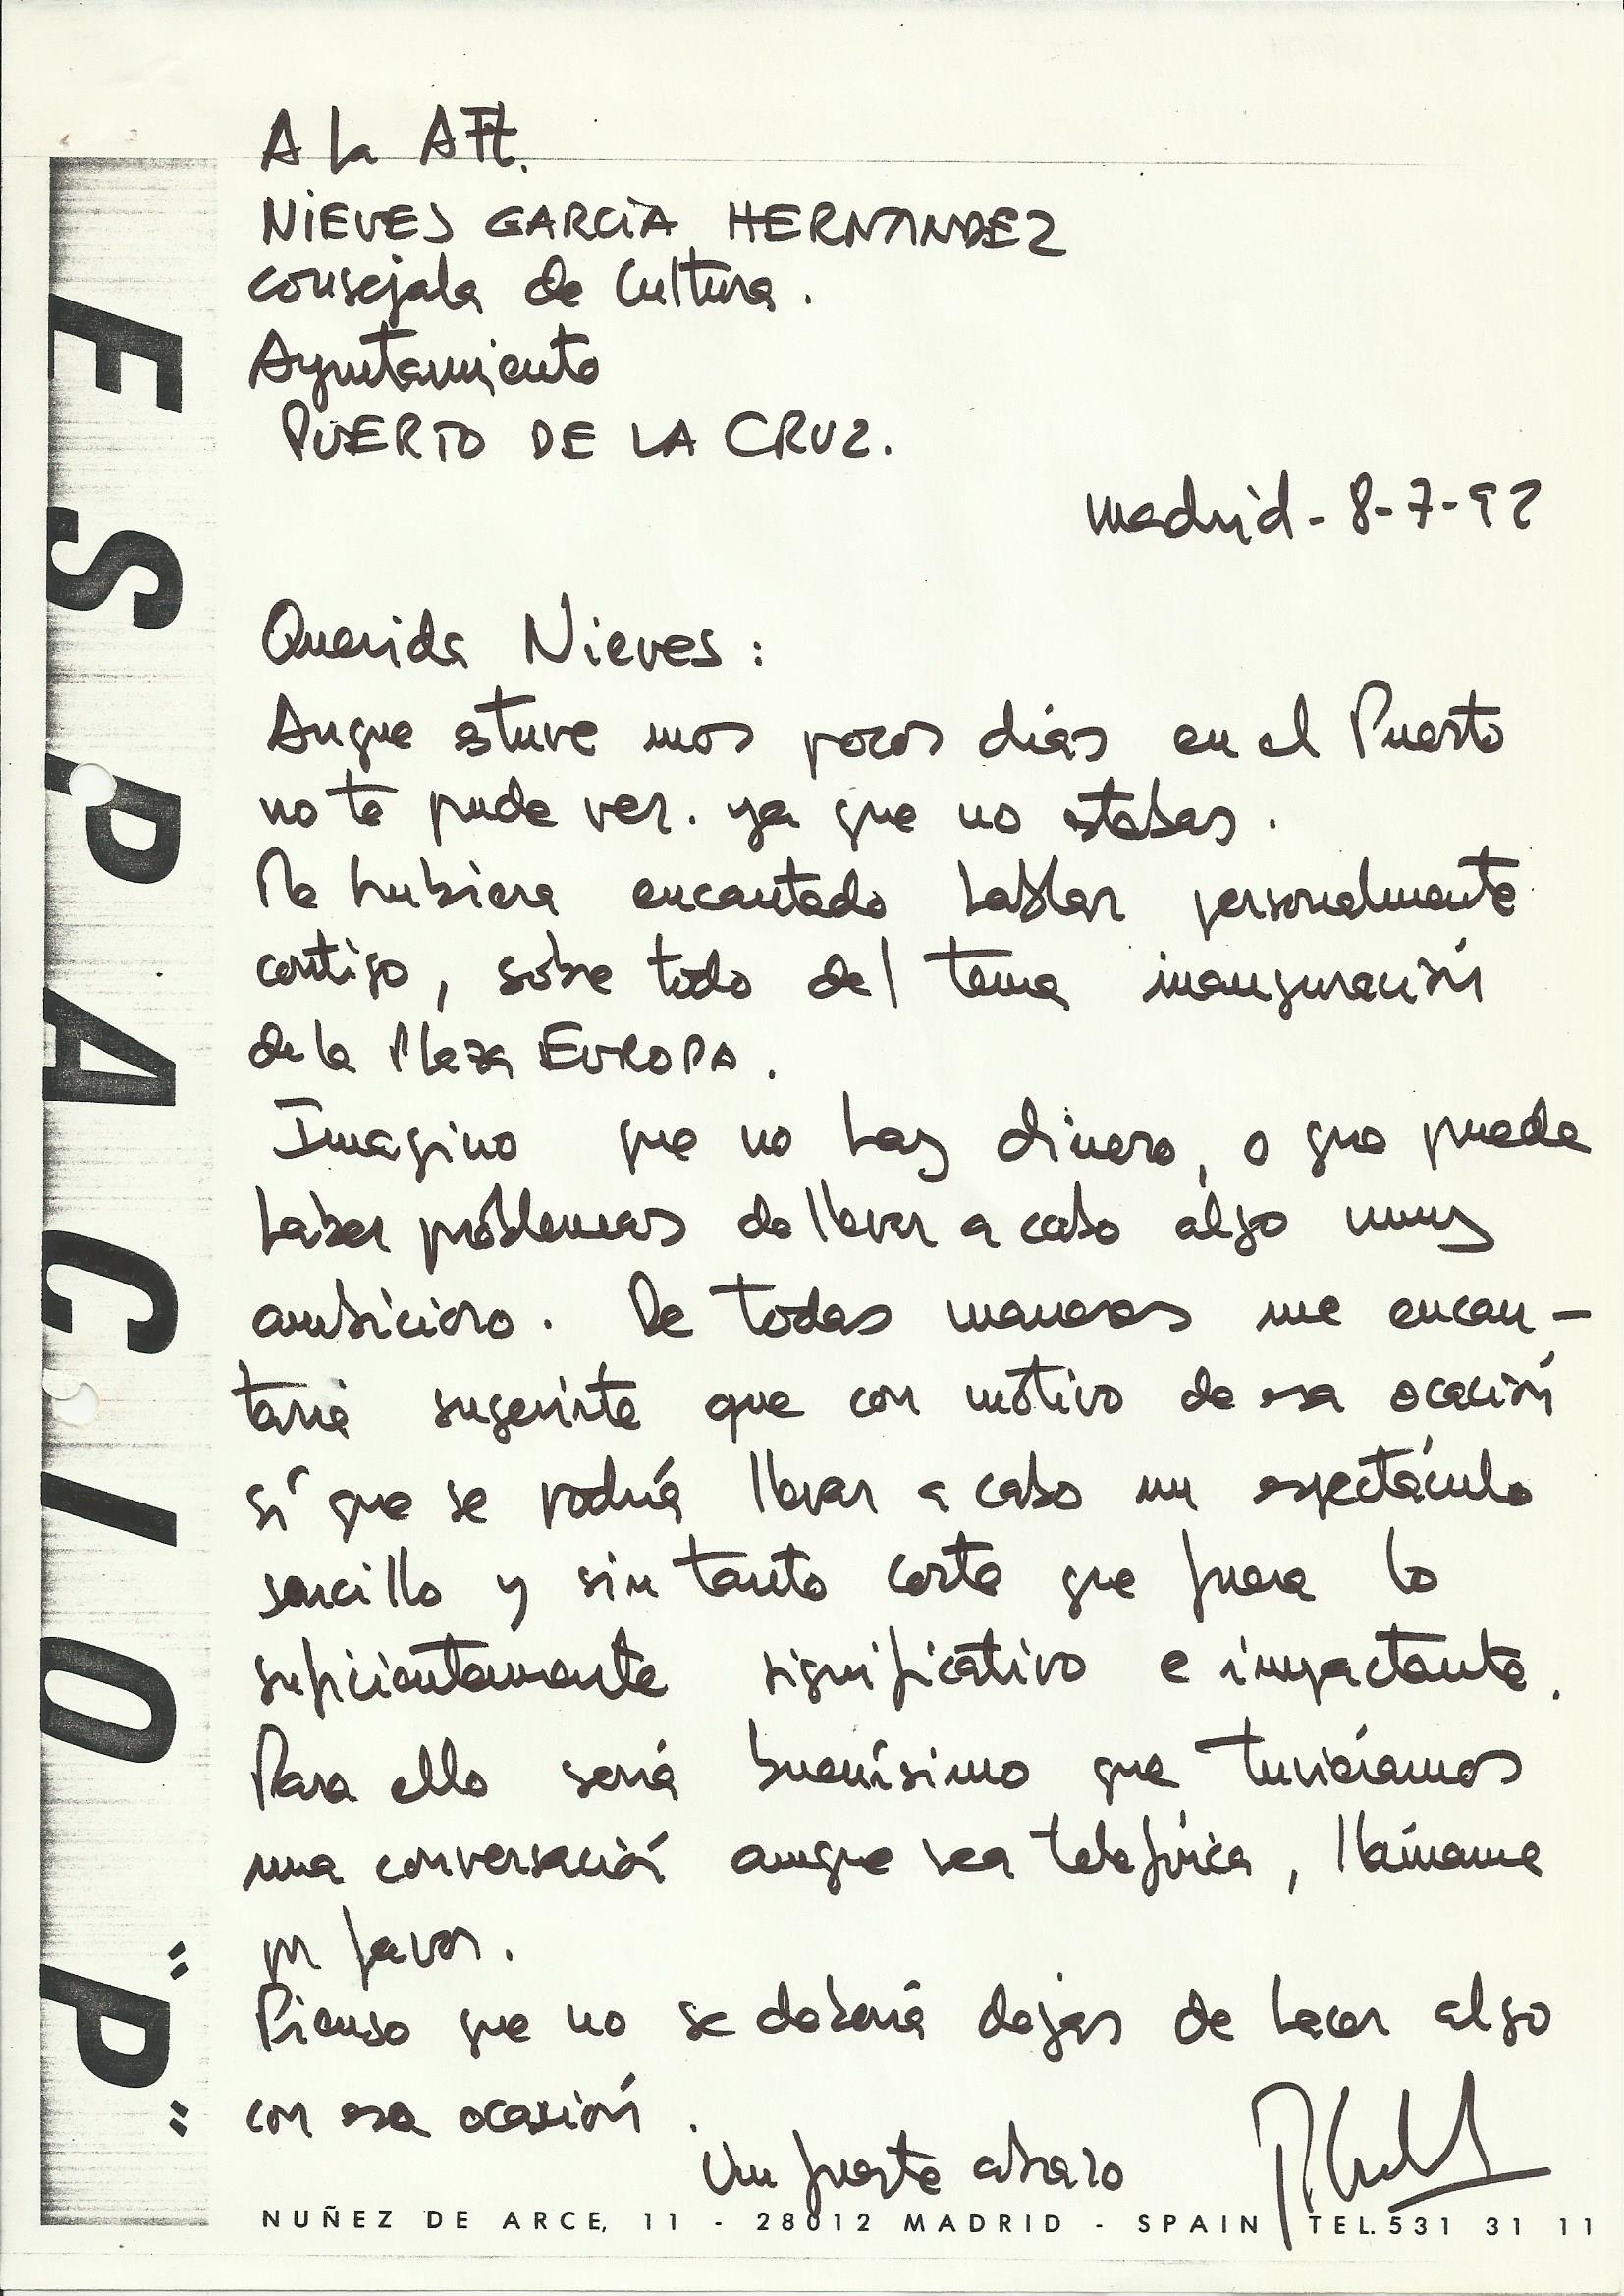 A la Att.
NIEVES GARCÍA HERNANDEZ
consejala de Cultura.
Ayuntamiento
PUERTO DE LA CRUZ.
Madrid - 8-7-92
Querida Nieves:
Aunque estuve unos pocos días en el Puerto
no te pude ver. ya que no estabas.
Me hubiera encantado hablar personalmente
contigo, sobre todo del tema inauguración
de la Plaza EUROPA.
Imagino que no hay dinero, o que puede
haber problemas de llevar a cabo algo muy
ambicioso. De todas maneras me encan-
taría sugerirte que con motivo de esa ocación
sí que se podría llevar a cabo un espectáculo
sencillo y sin tanto coste que fuera lo
suficientemente significativo e impactante.
Para ello sería buenísimo que tuvieramos
una conversación aunque sea telefónica, llámame
por favor.
Pienso que no se debería dejar de hacer algo
con esa ocasión.
Un fuerte abrazo
ESPACIO "P"
NUÑEZ DE ARCE, 11 - 28012 MADRID - SPAIN TEL. 531 31 11